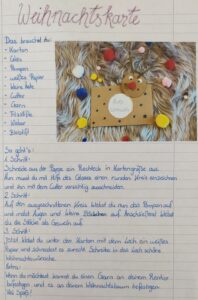 Weihnachtskarte
Das brauchst du:
- Karton
- Glas
- Pompon
- weißes Papier
- kleine Äste
- Cutter
- Garn
- Filzstifte
- Kleber
- Bleistift
So geht's:
1. Schritt:
Schneide aus der Pappe ein Rechteck in Kartengröße aus.
Nun musst du mit Hilfe des Glases einen runden Kreis einzeichnen
und ihn mit dem Cutter vorsichtig ausschneiden.
2. Schritt:
Auf den ausgeschnittenen Kreis klebst du nun das Pompon auf
und malst Augen und kleine Bäckchen auf. Anschließend klebst
du die Stöcke als Geweih auf.
3. Schritt:
Jetzt klebst du unter den Karton mit dem Loch ein weißes
Papier und schreibst es vorsichtig. Schreibe in das Loch schöne
Weihnachtswünsche.
Extra:
Wenn du möchtest kannst du einen Garn an deinem Rentier
befestigen und es an deinem Weihnachtsbaum befestigen.
Viel Spaß!